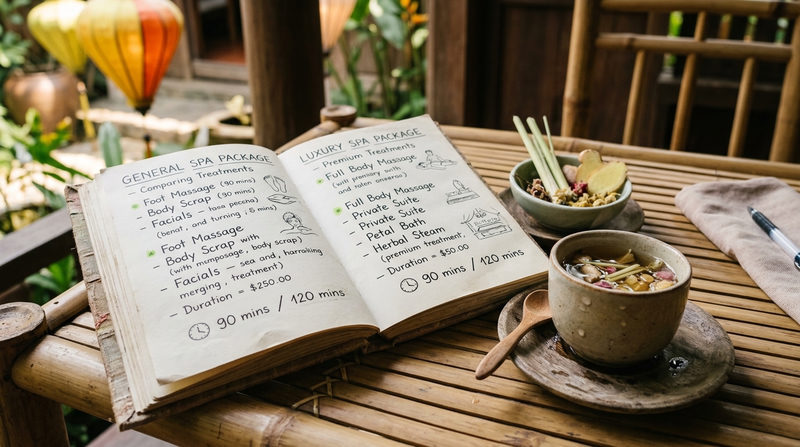 GENERAL SPA PACKAGE
- Comparing Treatments
Foot Massage (90 mins)
Body Scrap (30 mins)
- Facials – tose pecina)
(benat, and turning ; 5 mins)
- Foot Massage
- Body Scrap with
(with mumposage, body scrap)
- Facials – sea and, harraising
merging, treatment)
- Duration = $250.00
90 mins / 120 mins
LUXURY SPA PACKAGE
- Premium Treatments
Full Body Massage
(will premiury with
and raten oneeros)
- Full Body Massage
- Private Suite
- Private Suite
- Petal Bath
- Herbal Steam
(premium treatment,
- Duration = $50.00
90 mins / 120 mins